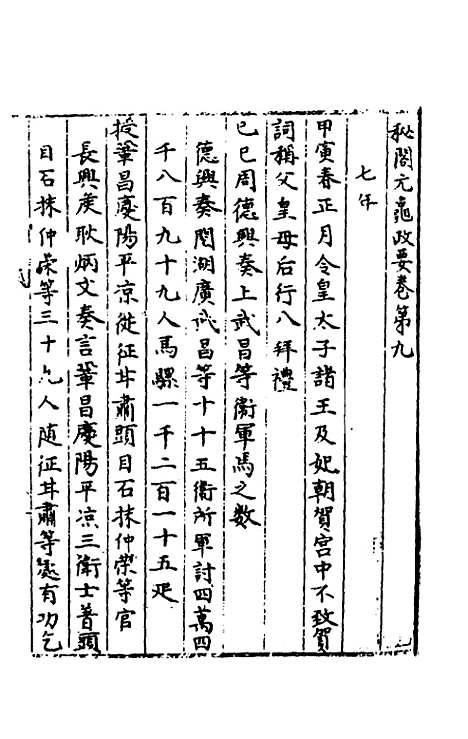 秘閣元龜政要卷第九
七年
甲寅春正月令皇太子諸王及妃朝賀宮中不致賀
詞稱父皇母后行八拜禮
己巳周德興奏上武昌等衛軍馬之數
德興奏閱湖廣武昌等十十五衛所軍討四萬四
千八百九十九人馬騾一千二百一十五疋
授鞏昌慶陽平凉從征甘肅頭目石抹仲榮等官
長興侯耿炳文奏言鞏昌慶陽平凉三衛士普頭
目石抹仲榮等三十九人随征甘肅等處有功乞